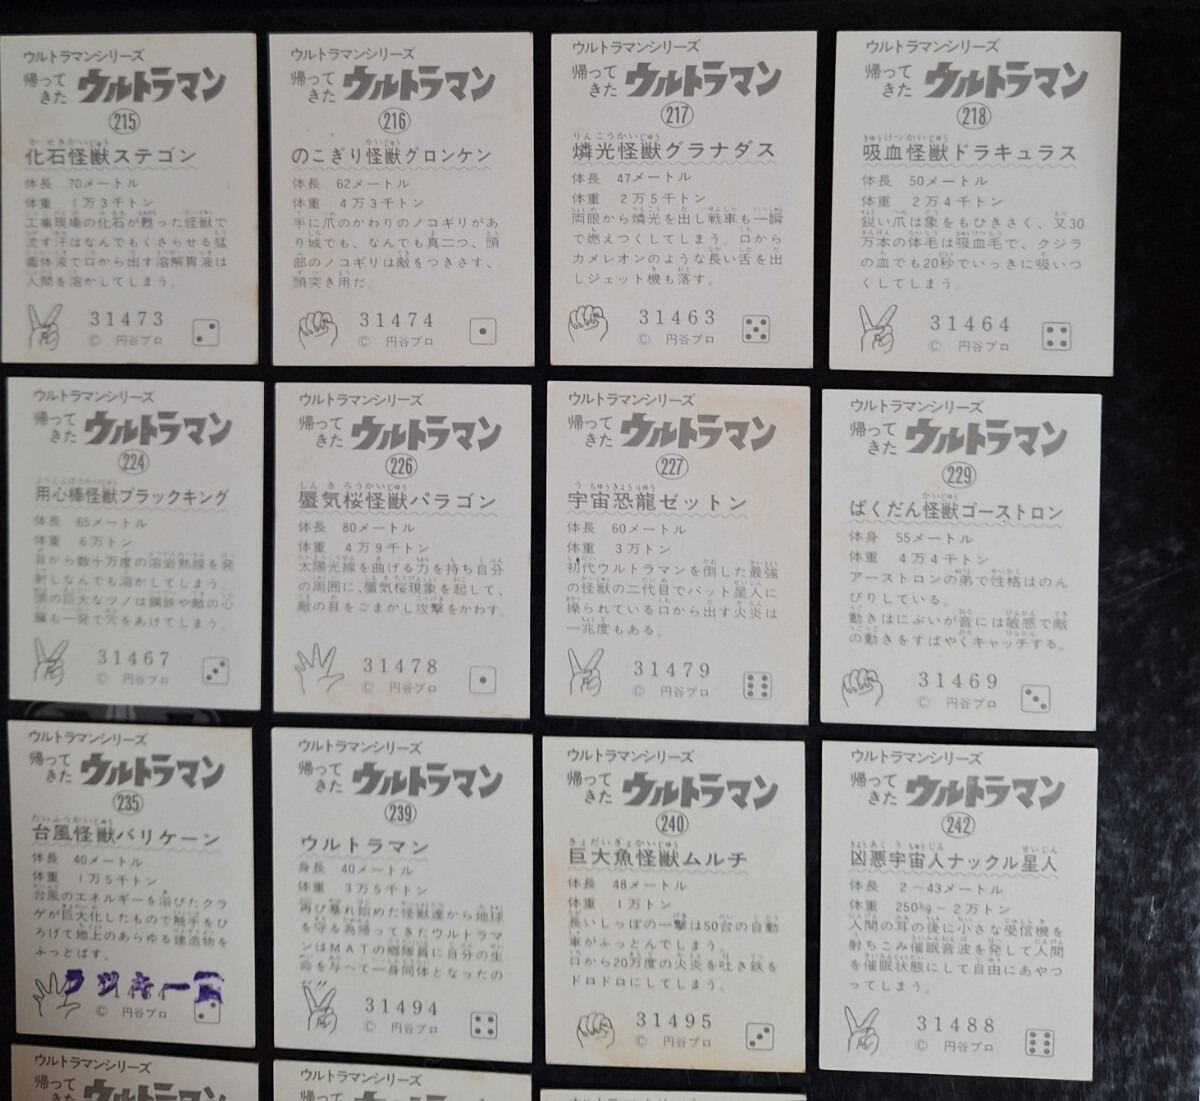 ウルトラマンシリーズ
帰ってきた ウルトラマン
215
化石怪獣ステゴン
体長 70メートル
体重 1万3千トン
工事現場の化石が甦った怪獣で
流す汗はなんでもくさらせる猛
毒体液で口から出す溶解胃液は
人間を溶かしてしまう。
31473
© 円谷プロ
ウルトラマンシリーズ
帰ってきた ウルトラマン
216
のこぎり怪獣グロンケン
体長 62メートル
体重 4万3千トン
手に爪のかわりのノコギリがあ
り城でも、なんでも真二つ、頭
部のノコギリは敵をつきさす、
頭突き用だ。
31474
© 円谷プロ
ウルトラマンシリーズ
帰ってきた ウルトラマン
217
燐光怪獣グラナダス
体長 47メートル
体重 2万5千トン
両眼から燐光を出し戦車も一瞬
で燃えつくしてしまう。口から
カメレオンのような長い舌を出
しジェット機も落す。
31463
© 円谷プロ
ウルトラマンシリーズ
帰ってきた ウルトラマン
218
吸血怪獣ドラキュラス
体長 50メートル
体重 2万4千トン
鋭い爪は象をもひきさく、又30
万本の体毛は吸血毛で、クジラ
の血でも20秒でいっきに吸いつ
くしてしまう。
31464
© 円谷プロ
ウルトラマンシリーズ
帰ってきた ウルトラマン
224
用心棒怪獣ブラックキング
体長 65メートル
体重 6万トン
目から数十万度の溶岩熱線を発
射しなんでも溶かしてしまう。
頭の巨大なツノは鋼鉄や敵の心
臓も一発で穴をあけてしまう。
31467
© 円谷プロ
ウルトラマンシリーズ
帰ってきた ウルトラマン
226
蜃気桜怪獣パラゴン
体長 80メートル
体重 4万9千トン
太陽光線を曲げる力を持ち自分
の周囲に、蜃気桜現象を起して、
敵の目をごまかし攻撃をかわす。
31478
© 円谷プロ
ウルトラマンシリーズ
帰ってきた ウルトラマン
227
宇宙恐龍ゼットン
体長 60メートル
体重 3万トン
初代ウルトラマンを倒した最強
の怪獣の二代目でバット星人に
操られている口から出す火炎は
一兆度もある。
31479
© 円谷プロ
ウルトラマンシリーズ
帰ってきた ウルトラマン
229
ばくだん怪獣ゴーストロン
体身 55メートル
体重 4万4千トン
アーストロンの弟で性格はのん
びりしている。
動きはにぶいが音には敏感で敵
の動きをすばやくキャッチする。
31469
© 円谷プロ
ウルトラマンシリーズ
帰ってきた ウルトラマン
235
台風怪獣バリケーン
体長 40メートル
体重 1万5千トン
台風のエネルギーを浴びたクラ
ゲが巨大化したもので触手をひ
ろげて地上のあらゆる建造物を
ふっとばす。
© 円谷プロ
ウルトラマンシリーズ
帰ってきた ウルトラマン
239
ウルトラマン
身長 40メートル
体重 3万5千トン
再び暴れ始めた怪獣達から地球
を守る為帰ってきたウルトラマ
ンはMATの郷隊員に自分の生
命を与へて一身同体となったの
だ。
31494
© 円谷プロ
ウルトラマンシリーズ
帰ってきた ウルトラマン
240
巨大魚怪獣ムルチ
体長 48メートル
体重 1万トン
長いしっぽの一撃は50台の自動
車がふっとんでしまう。
口から20万度の火炎を吐き鉄を
ドロドロにしてしまう。
31495
© 円谷プロ
ウルトラマンシリーズ
帰ってきた ウルトラマン
242
凶悪宇宙人ナックル星人
体長 2~43メートル
体重 250kg~2万トン
人間の耳の後に小さな受信機を
射ちこみ催眠音波を発して人間
を催眠状態にして自由にあやつ
ってしまう。
31488
© 円谷プロ
ウルトラマンシリーズ
帰って ウルトラマン
ウルトラマンシリーズ
帰って